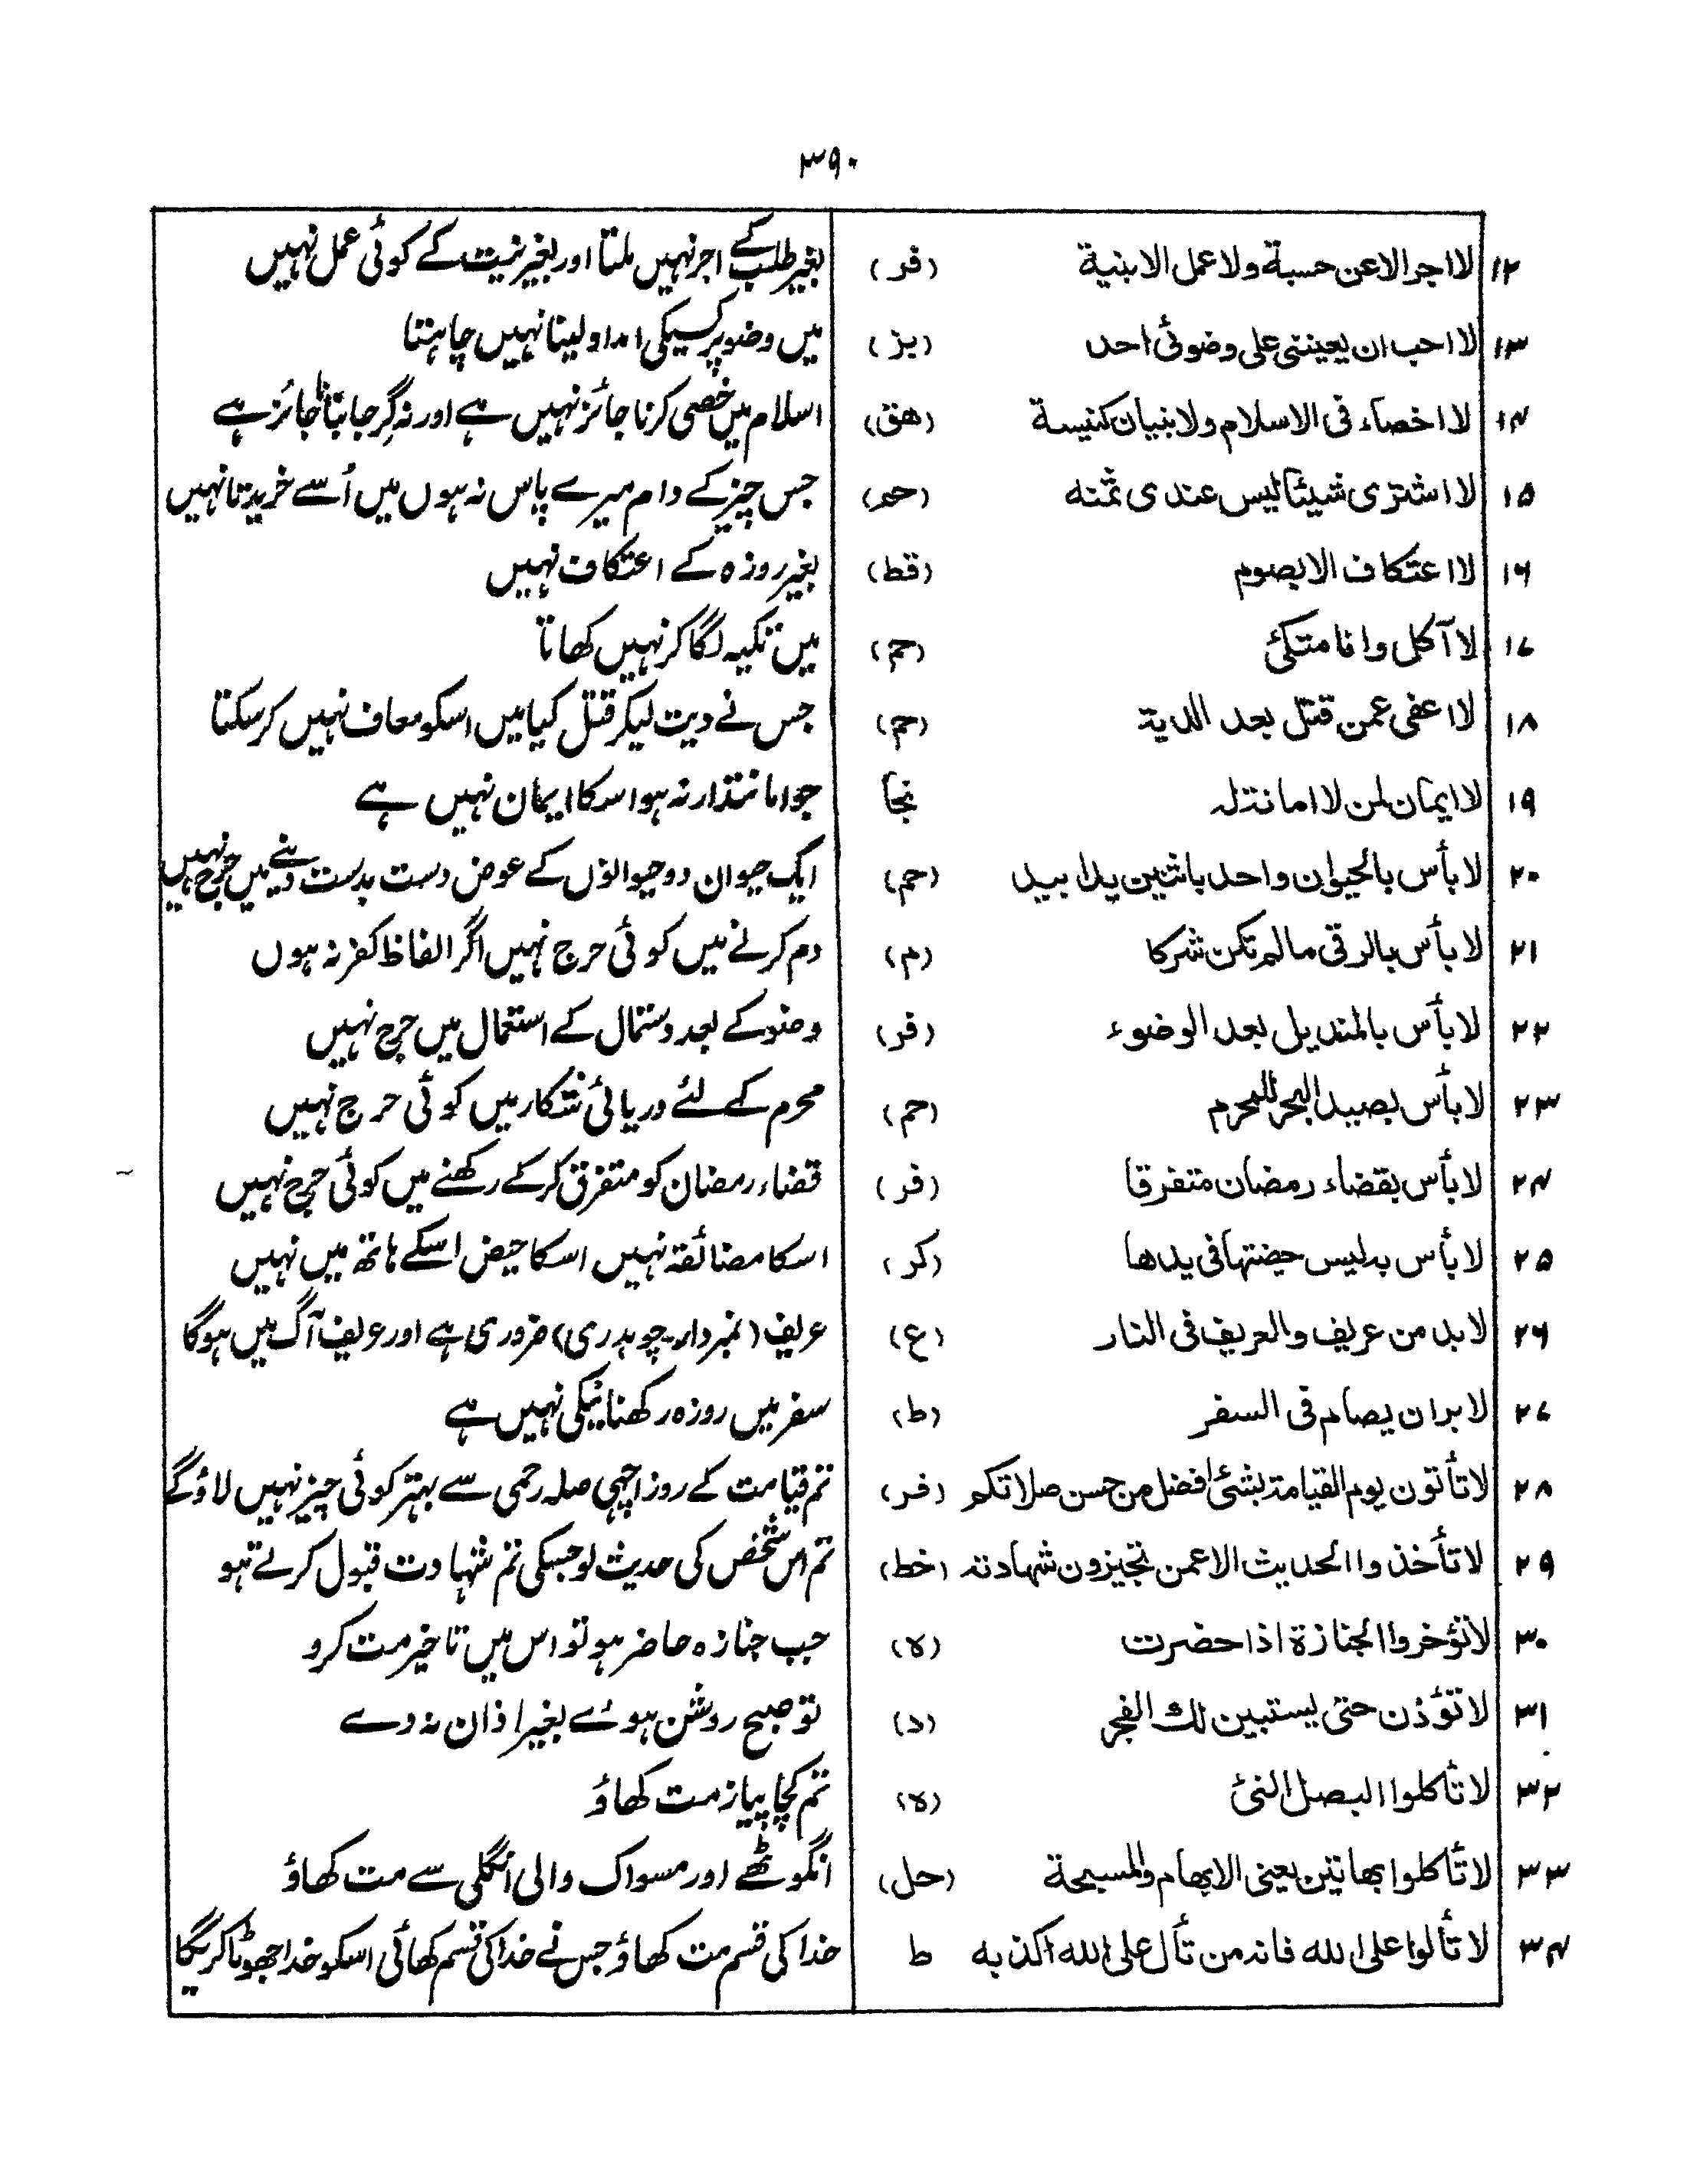 ۳۹۰
۱۲ لا اجر الا عن حسبة ولا عمل الا بنیة (فر) بغیر طلب کے اجر نہیں ملتا اور بغیر نیت کے کوئی عمل نہیں
۱۳ لا احب ان یعیننی علی وضوئی احد (بز) میں وضو پر کسیکی امداد لینا نہیں چاہتا
۱۴ لا اخصاء فی الاسلام ولا بنیان کنیسة (هق) اسلام میں خصی کرنا جائز نہیں ہے اور نہ گرجا بنانا جائز ہے
۱۵ لا اشتری شیئا لیس عندی ثمنه (حم) جس چیز کے دام میرے پاس نہ ہوں میں اُسے خریدتا نہیں
۱۶ لا اعتکاف الا بصوم (قط) بغیر روزہ کے اعتکاف نہیں
۱۷ لا آکل وانا متکئ (حم) میں تکیہ لگا کر نہیں کھاتا
۱۸ لا اعفی عمن قتل بعد الدیة (حم) جس نے دیت لیکر قتل کیا میں اسکو معاف نہیں کر سکتا
۱۹ لا ایمان لمن لا امانة له نجا جو امانتدار نہ ہو اسکا ایمان نہیں ہے
۲۰ لا بأس بالحیوان واحد باثنین یدا بید (حم) ایک حیوان دو حیوانوں کے عوض دست بدست دینے میں حرج نہیں
۲۱ لا بأس بالرقی مالم تکن شرکا (م) دم کرنے میں کوئی حرج نہیں اگر الفاظ کفر نہ ہوں
۲۲ لا بأس بالمندیل بعد الوضوء (فر) وضو کے بعد دستمال کے استعمال میں حرج نہیں
۲۳ لا بأس بصید البحر للمحرم (حم) محرم کے لئے دریائی شکار میں کوئی حرج نہیں
۲۴ لا بأس بقضاء رمضان متفرقا (فر) قضاء رمضان کو متفرق کرکے رکھنے میں کوئی حرج نہیں
۲۵ لا بأس به لیس حیضتها فی یدها (کر) اسکا مضائقہ نہیں اسکا حیض اسکے ہاتھ میں نہیں
۲۶ لا بد من عریف والعریف فی النار (ع) عریف (نمبردار۔چوہدری) ضروری ہے اور عریف آگ میں ہوگا
۲۷ لا بر ان یصام فی السفر (ط) سفر میں روزہ رکھنا نیکی نہیں ہے
۲۸ لا تأتون یوم القیامة بشئ افضل من حسن صلاتکم (فر) تم قیامت کے روز اچھی صلہ رحمی سے بہتر کوئی چیز نہیں لاؤگے
۲۹ لا تأخذوا الحدیث الا عمن تجیزون شهادته (خط) تم اس شخص کی حدیث لو جسکی تم شہادت قبول کرتے ہو
۳۰ لا تؤخروا الجنازة اذا حضرت (ه) جب جنازہ حاضر ہو تو اس میں تاخیر مت کرو
۳۱ لا تؤذن حتی یستبین لك الفجر (د) تو صبح روشن ہوئے بغیر اذان نہ دے
۳۲ لا تأکلوا البصل النئ (ه) تم کچا پیاز مت کھاؤ
۳۳ لا تأکلوا بهاتین یعنی الابهام والمسبحة (حل) انگوٹھے اور مسواک والی انگلی سے مت کھاؤ
۳۴ لا تألوا علی الله فانه من تأل علی الله اکذبه ط خدا کی قسم مت کھاؤ جس نے خدا کی قسم کھائی اسکو خدا جھوٹا کریگا